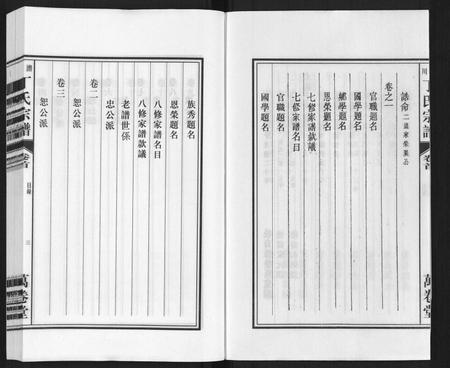 誥命
卷之一
官職題名
國學題名
郷學題名
恩榮題名
七修家譜欵議
七修家譜名目
官職題名
國學題名
丁氏宗譜
卷首
萬卷堂
族秀題名
恩榮題名
八修家譜名目
八修家譜欵議
老譜世係
忠公派
卷二
恕公派
卷三
恕公派
丁氏宗譜
卷首
目錄
三
萬卷堂